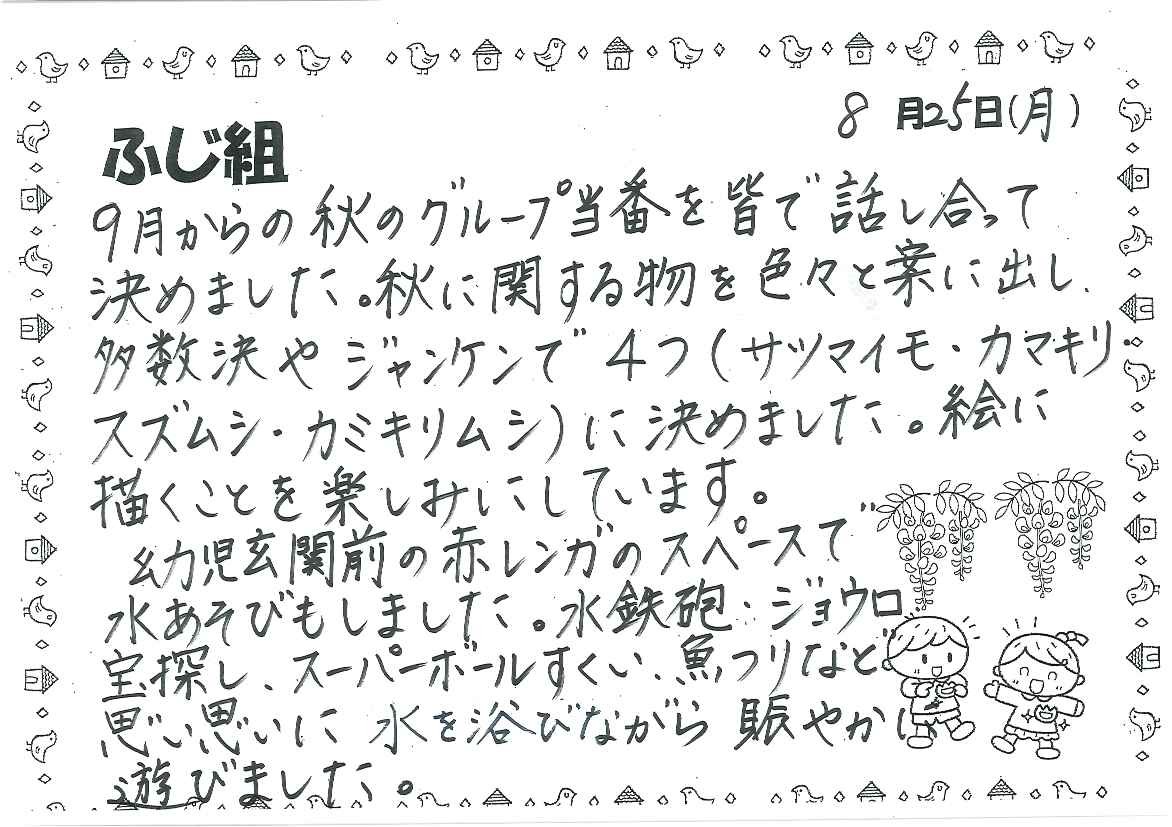 8月25日(月)
ふじ組
9月からの秋のグループ当番を皆で話し合って
決めました。秋に関する物を色々と案に出し、
多数決やジャンケンで4つ(サツマイモ・カマキリ・
スズムシ・カミキリムシ)に決めました。絵に
描くことを楽しみにしています。
幼児玄関前の赤レンガのスペースで
水あそびもしました。水鉄砲、ジョウロ、
宝探し、スーパーボールすくい、魚つりなど
思い思いに水を浴びながら賑やかに
遊びました。